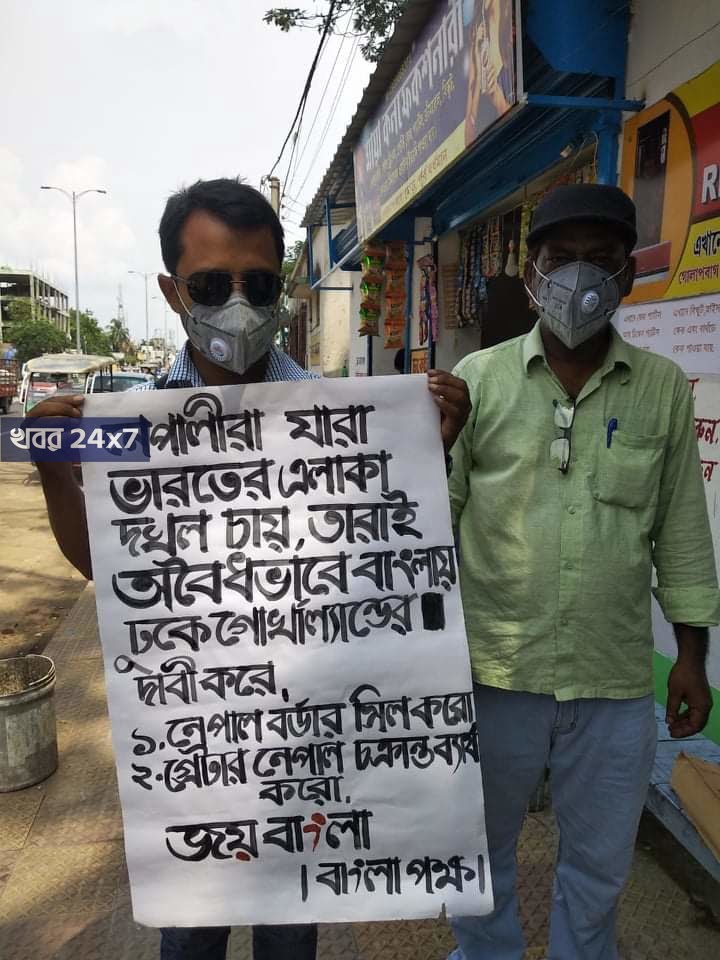 মায়া কনফেকশনারী
খবর 24x7
পালীরা যারা
ভারতের এলাকা
দখল চায়, তারাই
অবৈধভাবে বাংলায়
ঢুকে গোর্খাল্যান্ডের
দাবী করে,
১. নেপাল বর্ডার সিল করো
২. গ্রেটার নেপাল চক্রান্ত ব্যর্থ
করো.
জয় বাংলা
। বাংলা পক্ষ।
এখানে
গোলাপবাগ